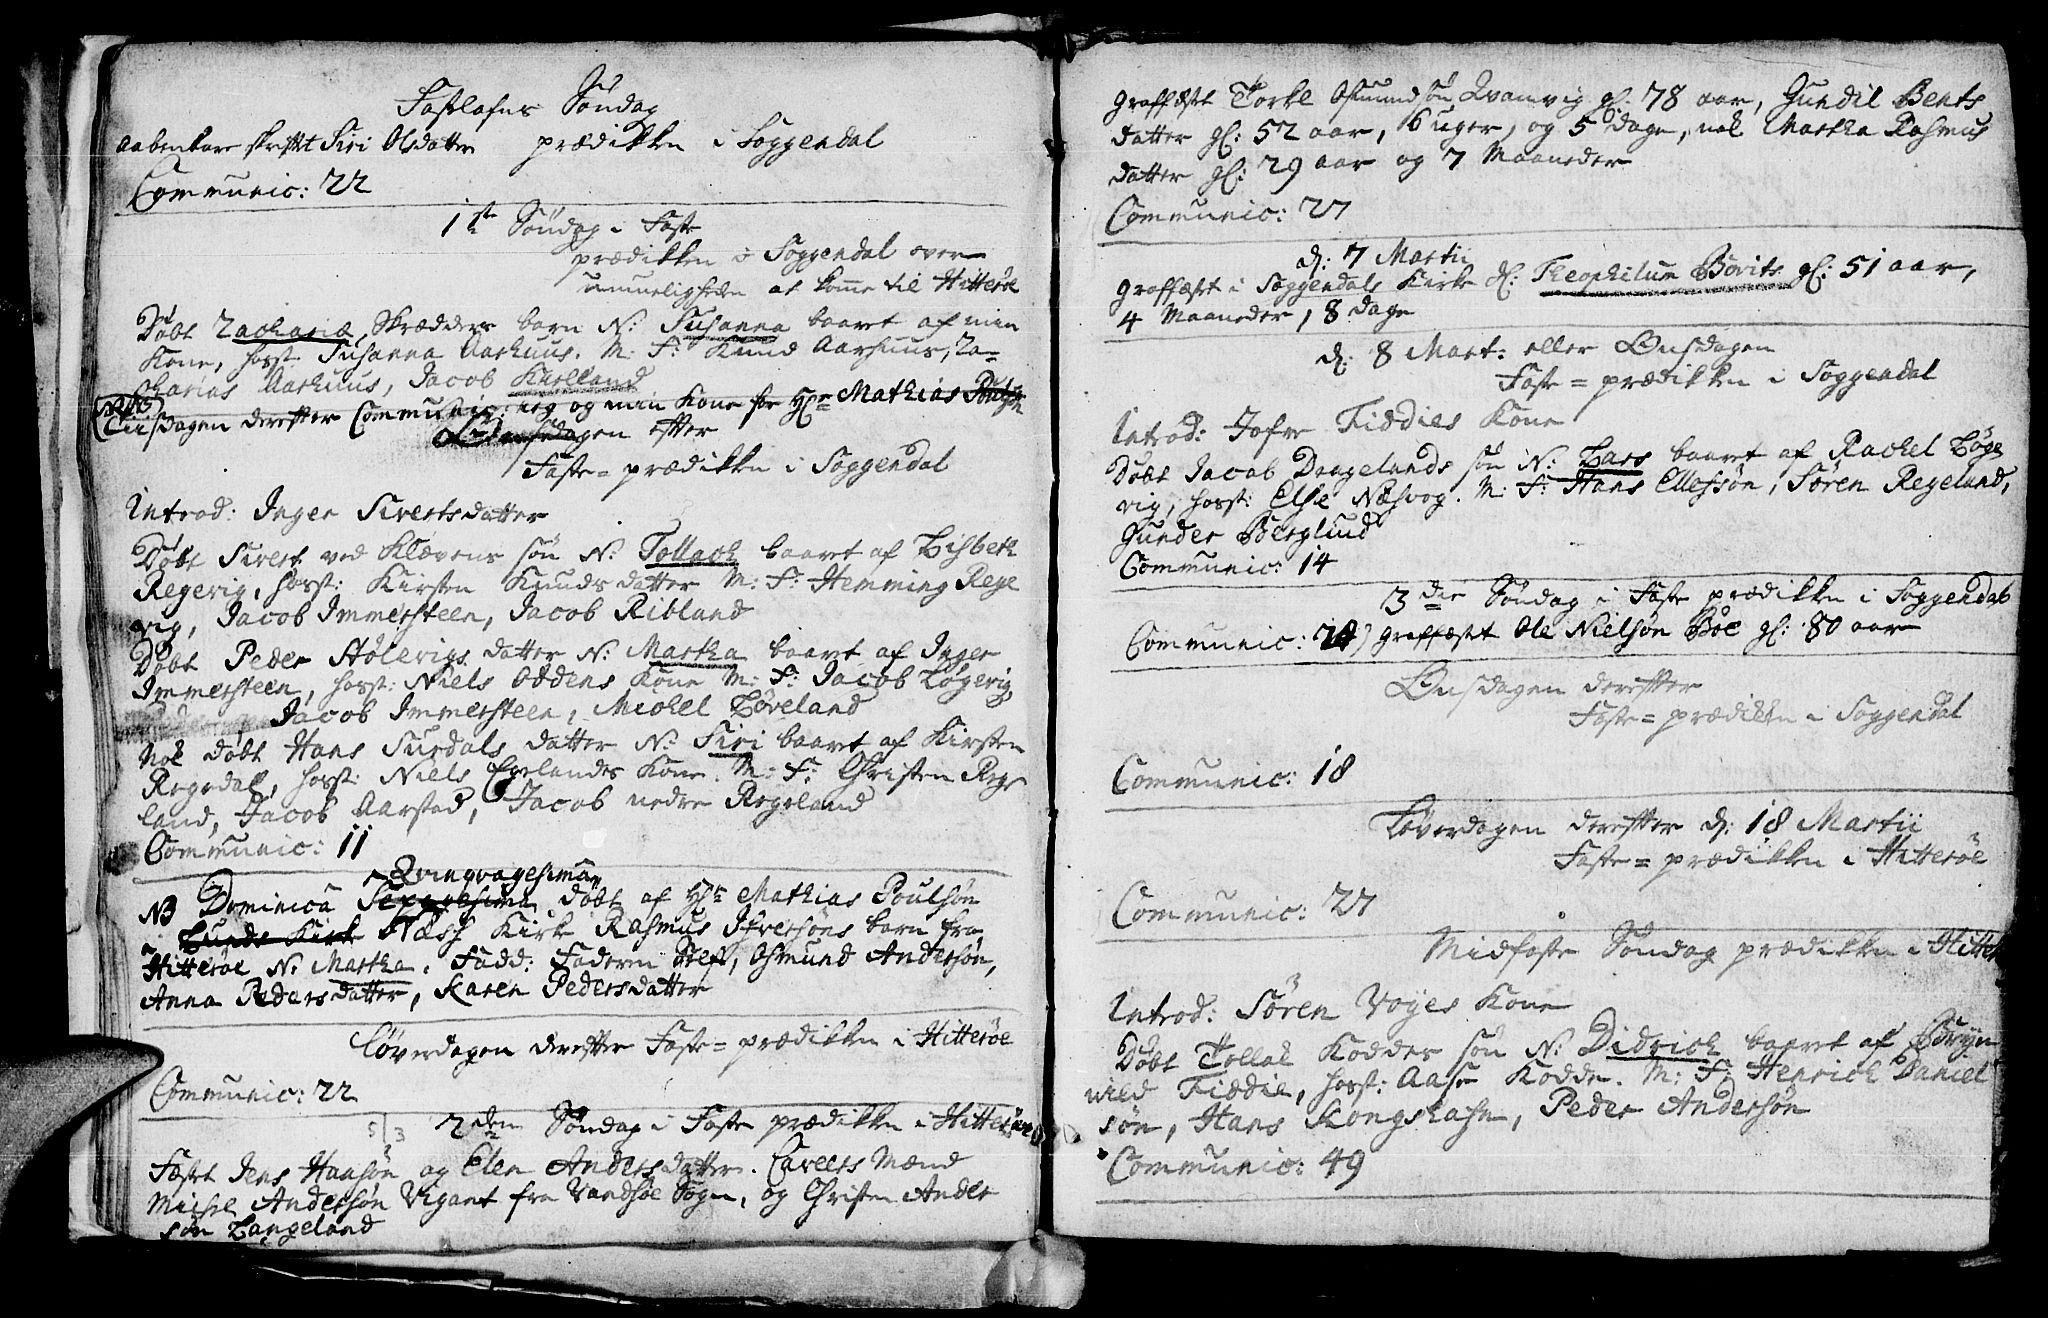 Fastelafns Søndag
aabenbare skriftet Siri Olsdatter prædikken i Soggendal
Communic: 22
1ste Søndag i Faste
prædikken i Soggendal over
umueligheden at komme til Hitterøe
Døbt Zachariæ Skrædders barn N: Susanna baaret af min
Kone, hosst: Susanna Aarhuus. M: F: Knud Aarhuus, Za-
charias Aarhuus, Jacob Kielland
Tiisdagen derefter Communic: jeg og min Kone for Hr Mathias
Onsdagen efter
Faste=prædikken i Soggendal
Introd: Inger Sivertsdatter
Døbt Sivert ved Kløvens søn N: Tollach baaret af Lisbeth
Regevig, hosst: Kirsten Knudsdatter M: F: Hemming Rege
vig, Jacob Immersteen, Jacob Ribland
Døbt Peder Stølevigs datter N: Martha baaret af Inger
Immersteen, hosst: Niels Oddens Kone M: F: Jacob Løgevig
Jacob Immersteen, Michel Løveland
Nok døbt Hans Surdals datter N: Siri baaret af Kirsten
Regedal, hosst: Niels Egelandes Kone. M: F: Christen Rege
land, Jacob Aarstad, Jacob nedre Regeland
Communic: 11
Qvinqvagesima
NB Dominica Sexagesima døbt af Hr Mathias Poulsøn
Lunds Kirk Næss Kirke Rasmus Ifversøns barn fra
Hitterøe N: Martha. Fadd: Faderen Self, Osmund Andersøn,
Anna Pedersdatter, Karen Pedersdatter
Løverdagen derefter Faste=prædikken i Hitterøe
Communic: 22
5/3 2den Søndag i Faste prædikken i Hitterøe
Fæstet Jens Hansøn og Elen Andersdatter. Caveers Mænd
Michel Andersøn Vigant fra Vandsøe Sogn, og Christen Ander
søn Langeland
Graffæstet Torkel Osmundsøn Qvamvig gl: 78 aar, Gundil Bents
datter gl: 52 aar, 6 uger, og 5 dage, nok Martha Rasmus
datter gl: 29 aar og 7 Maaneder
Communic: 27
d: 7 Martii
Graffæstet i Soggendals Kirke Sl: Theophilum Bovits gl: 51 aar,
4 Maaneder, 8 dage
d: 8 Mart: eller Onsdagen
Faste=prædikken i Soggendal
Introd: Jofre Fiddies Kone
Døbt Jacob Draagelands søn N: Lars baaret af Rachel Løge
vig, hosst: Else Næsvog. M: F: Hans Ellefsøn, Søren Regeland,
Gunder Berglund
Communic: 14
3die Søndag i Faste prædikken i Soggendal
Communic: 20) Graffæstet Ole Nielsøn Bøe gl: 80 aar
Onsdagen derefter
Faste=prædikken i Soggendal
Communic: 18
Løverdagen derefter d: 18 Martii
Faste=prædikken i Hitterøe
Communic: 27
Midfaste Søndag prædikken i Hitter
Introd: Søren Voyes Kone
Døbt Tollak Koddes søn N: Didrich baaret af Bryn
nild Fiddie, hosst: Aase Kodde. M: F: Henrich Daniel
søn, Hans Kongshafn, Peder Andersøn
Communic: 49